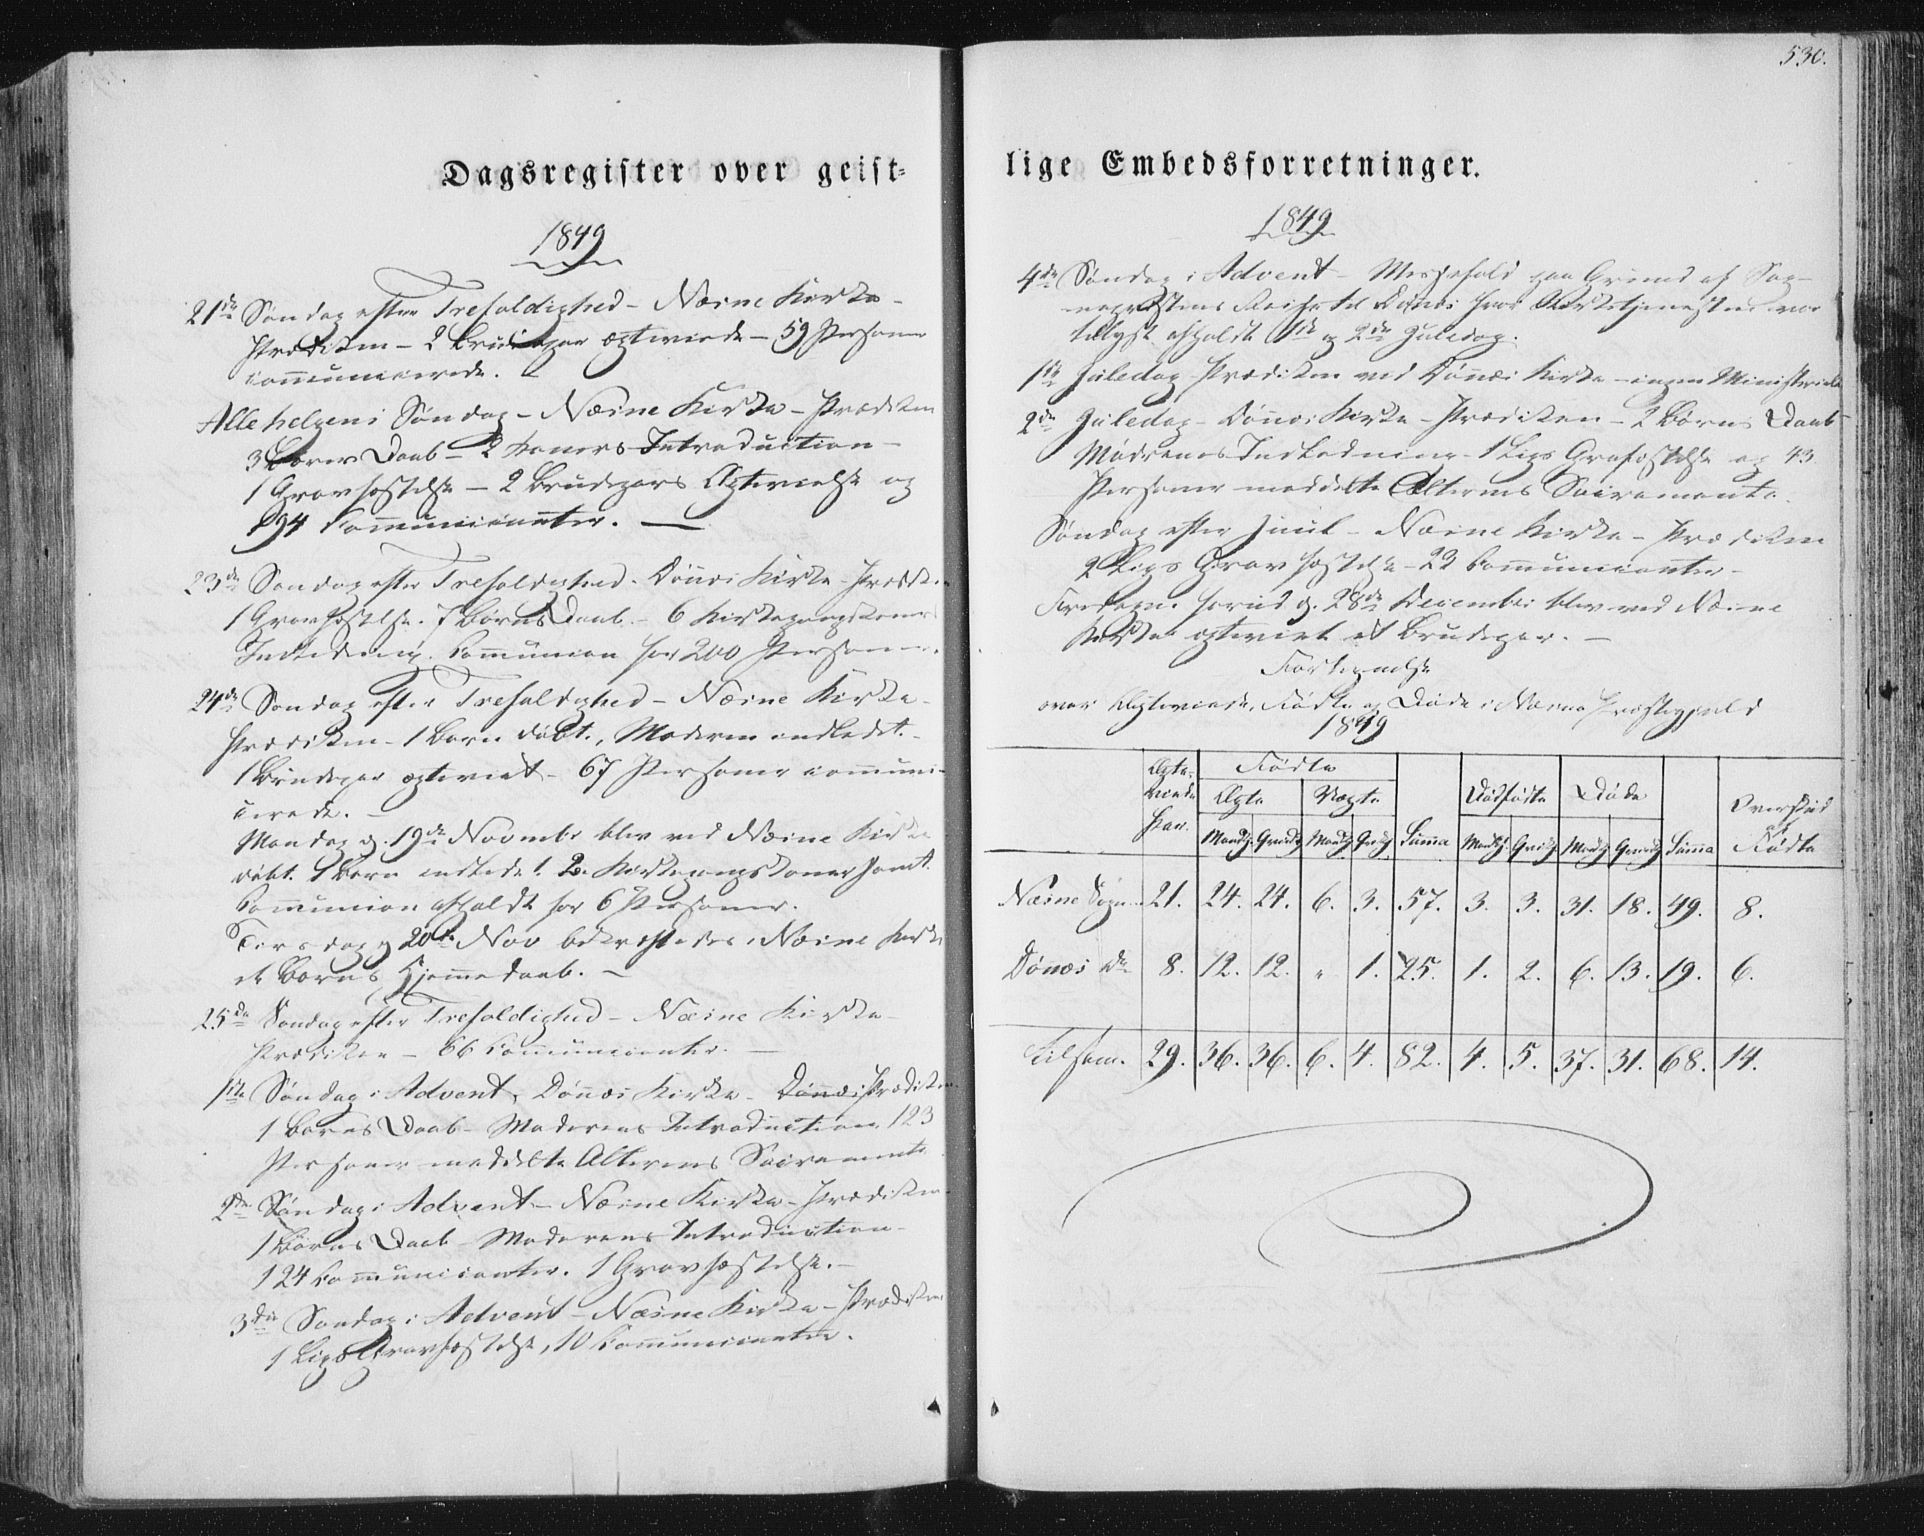 530.
Dagsregister over geist-
1849
21de Søndag efter Trefoldighed - Næsne Kirke -
Prædiken - 2 Brudepar ægteviede - 59 Personer
communicerede.
Allehelgens Søndag - Næsne Kirke - Prædiken
3 Børns Daab - 2 Koners Introduction -
1 Gravfæstelse - 2 Brudepars Ægtevielse og
194 Communicanter. —
23de Søndag efter Trefoldighed. Dönnæs Kirke - Prædiken
1 Gravfæstelse. 7 Børns Daab - 6 Kirkegangskoners
Indledning. Communion for 200 Personer.
24de Søndag efter Trefoldighed - Næsne Kirke -
Prædiken - 1 Barn døbt, Moderen indledet. -
1 Brudepar ægteviet - 67 Personer communi-
cerede. -
Mandag d. 19de Novembr blev ved Næsne Kirke
døbt 1 Barn indledet 2 Kirkegangskoner samt
Communion afholdt for 6 Personer.
Tirsdag d 20de Nov bekræftedes i Næsne Kirke
et Barns Hjemmedaab. -
25de Søndag efter Trefoldighed - Næsne Kirke -
Prædiken - 66 Communicanter. —
1ste Søndag i Advent, Dönnæs Kirke - Dönnæs Prædiken
1 Barns Daab - Moderens Introduction 123
Personer meddelte Alterens Sacramente
2den Søndag i Advent - Næsne Kirke - Prædiken -
1 Barns Daab Moderens Introduction -
124 Communicanter. 1 Gravfæstelse. -
3die Søndag i Advent - Næsne Kirke - Prædiken
1 Ligs Gravfæstelse, 10 Communicanter.
lige Embedsforretninger.
1849
4de Søndag i Advent - Messefald paa Grund af Sog-
nepræstens Reise til Dönnæs hvor Kirketjenesten var
tillyst afholdt 1ste og 2den Juledag.
1ste Juledag Prædiken ved Dönnæs Kirke - ingen Ministerialia
2den Juledag - Dönnæs Kirke - Prædiken - 2 Børns Daab -
Mødrenes Indledning - 1 Ligs Gravfæstelse og 43
Personer meddelte Alterens Sacramente.
Søndag efter Juul - Næsne Kirke - Prædiken
2 Ligs Gravfæstelse - 23 Communicanter -
Fredagen forud d. 28de December blev ved Næsne
Kirke ægteviet et Brudepar. -
Fortegnelse
over Ægteviede, Fødte og Døde i Næsne Præstegjeld
1849
Ægteviede Par. Fødte Ægte Uægte Summa Dødfødte Døde Summa Overskud af Fødte
Mandkj. Qvindkj. Mandkj. Qvindkj. Mandkj. Qvindkj. Mandkj. Qvindkj.
Næsne Sogn 21. 24. 24. 6. 3. 57. 3. 3. 31. 18. 49. 8.
Dönnæs do 8. 12. 12. " 1. 25. 1. 2. 6. 13. 19. 6.
Tilsam. 29. 36. 36. 6. 4. 82. 4. 5. 37. 31. 68. 14.